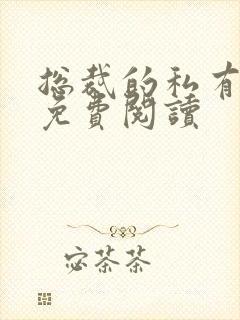 总裁的私有
免費閱讀
宓茶茶